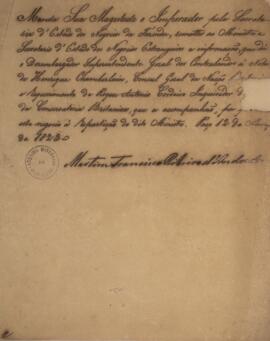 Manda Sua Magestade o Imperador pela Secretaria
d'Estado dos Negocios da Fazenda, remetter ao Ministro e
Secretario d'Estado dos Negocios Estrangeiros a informação, que dá
o Desembargador Superintendente Geral dos Contrabandos á Nota
de Henrique Chamberlain, Consul Geral da Nação
e requerimento de Roque Antonio Cordeiro Inquiridor
da Conservatoria Britanica, que a acompanhão, por
este negocio á Repartição do dito Ministro. Paço 12 de
de 1823
Martim Francisco Ribeiro d'Andrada